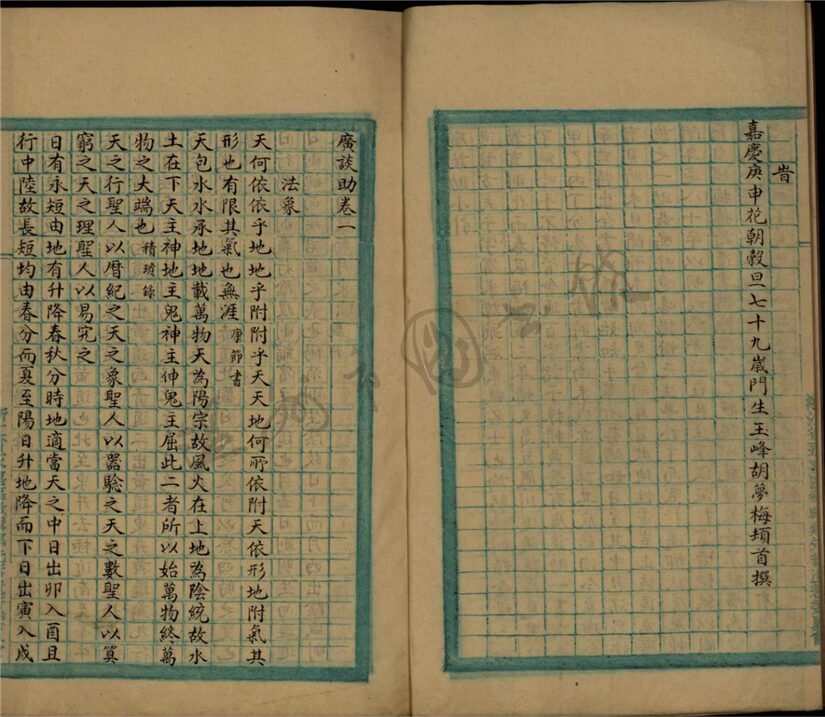 旹
嘉慶庚申花朝穀旦七十九歲門生玉峰胡夢梅頓首撰
廣談助卷一
法象
天何依依乎地地乎附附乎天天地何所依附天依形地附氣其
形也有限其氣也無涯康節書
天包水水承地地載萬物天為陽宗故風火在上地為陰統故水
土在下天主神地主鬼神主伸鬼主屈此二者所以始萬物終萬
物之大端也精玻錄
天之行聖人以曆紀之天之象聖人以器驗之天之數聖人以算
窮之天之理聖人以易究之
日有永短由地有升降春秋分時地適當天之中日出卯入酉且
行中陸故長短均由春分而夏至陽日升地降而下日出寅入戌